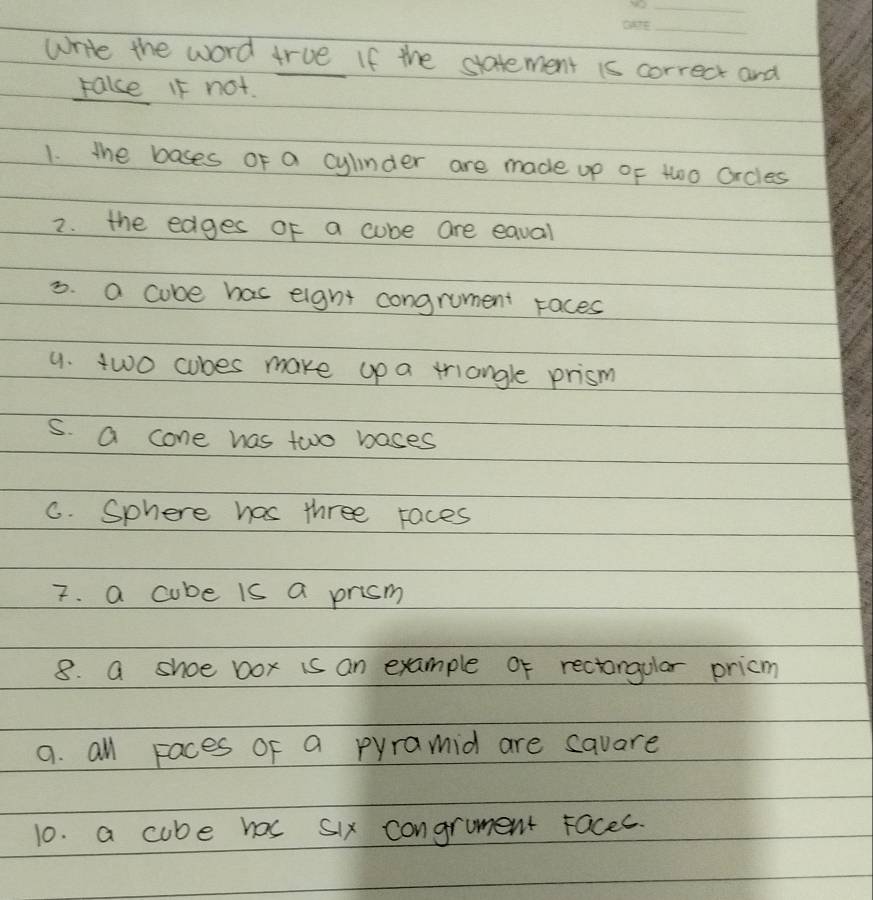 NO
DATE
Write the word true if the statement is correct and
False if not.
1. the bases of a cylinder are made up of two circles
2. the edges of a cube are equal
3. a cube has eight congrument faces
4. two cubes make up a triangle prism
5. a cone has two bases
6. Sphere has three faces
7. a cube is a prism
8. a shoe box is an example of rectangular prism
9. all faces of a pyramid are square
10. a cube has six congrument faces.